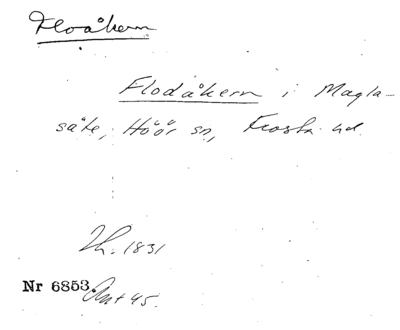 Floåkern
Flodåkern i Magla-
säte, Höör sn, Frosta hd.
Lh. 1831
Nr 6853. Ant 45.